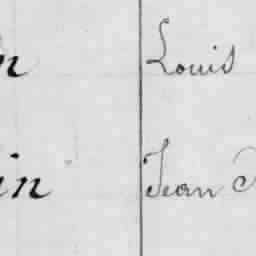 n Louis
in Jean